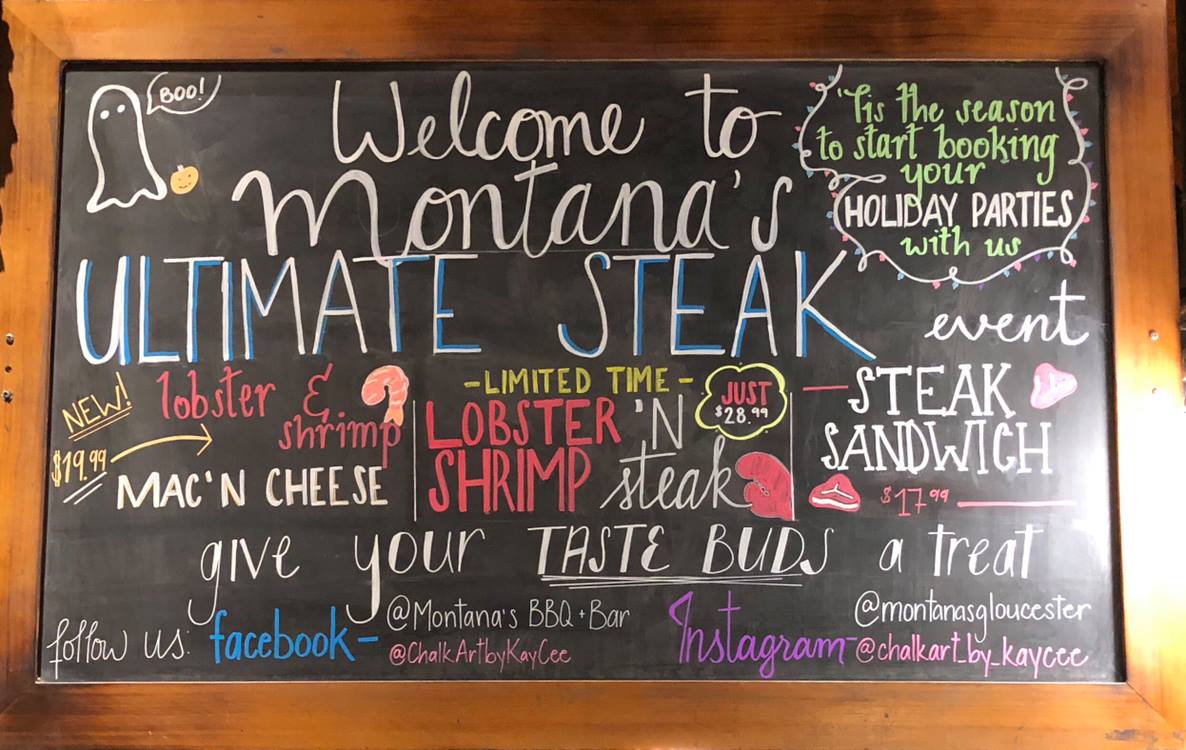 BOO!
Welcome to
Montana's
ULTIMATE STEAK
event
'Tis the season
to start booking
your
HOLIDAY PARTIES
with us
NEW!
$19.99
lobster &
shrimp
MAC'N CHEESE
-LIMITED TIME-
LOBSTER 'N
SHRIMP steak
JUST
$28.99
STEAK
SANDWICH
$17.99
give your TASTE BUDS a treat
follow us: facebook-
@Montana's BBQ + Bar
@ChalkArtbyKayCee
Instagram-
@montanasgloucester
@chalkart_by_kaycee